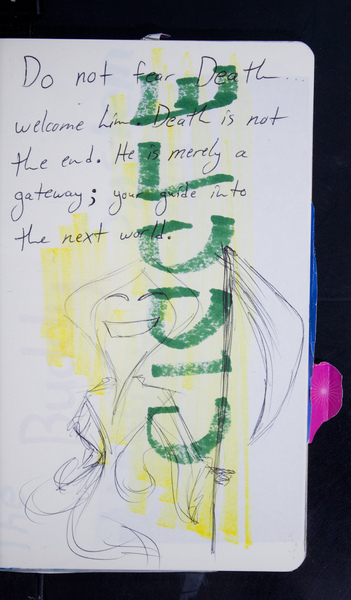 Do not fear Death...
welcome him. Death is not
the end. He is merely a
gateway; your guide into
the next world.
ELUCID